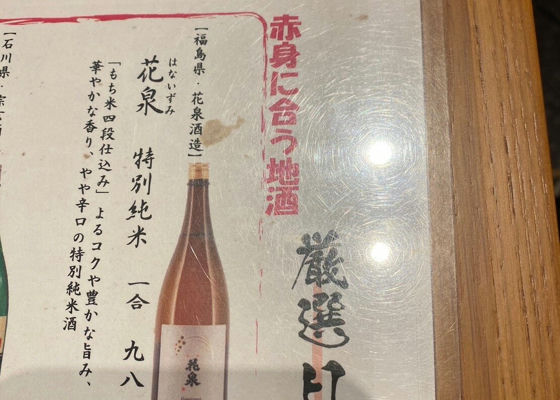 赤身に合う地酒
厳選
【福島県・花泉酒造】
はないずみ
花泉 特別純米 一合 九八
「もち米四段仕込み」よるコクや豊かな旨み、
華やかな香り、やや辛口の特別純米酒
花泉
【石川県・宗